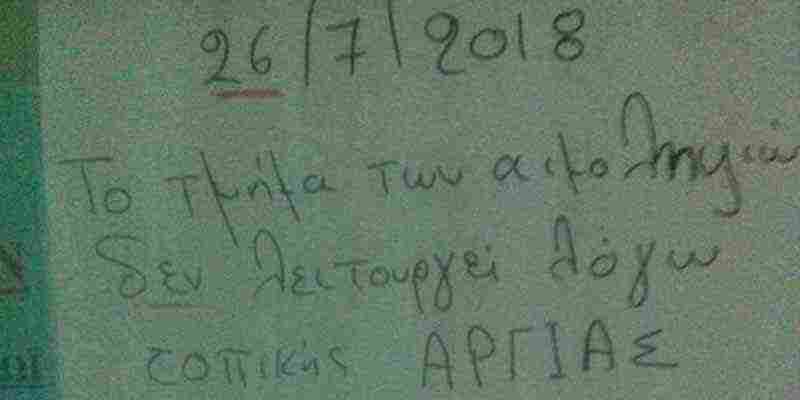 26/7/2018
Το τμήμα των αιμοληψιών
δεν λειτουργεί λόγω
τοπικής ΑΡΓΙΑΣ